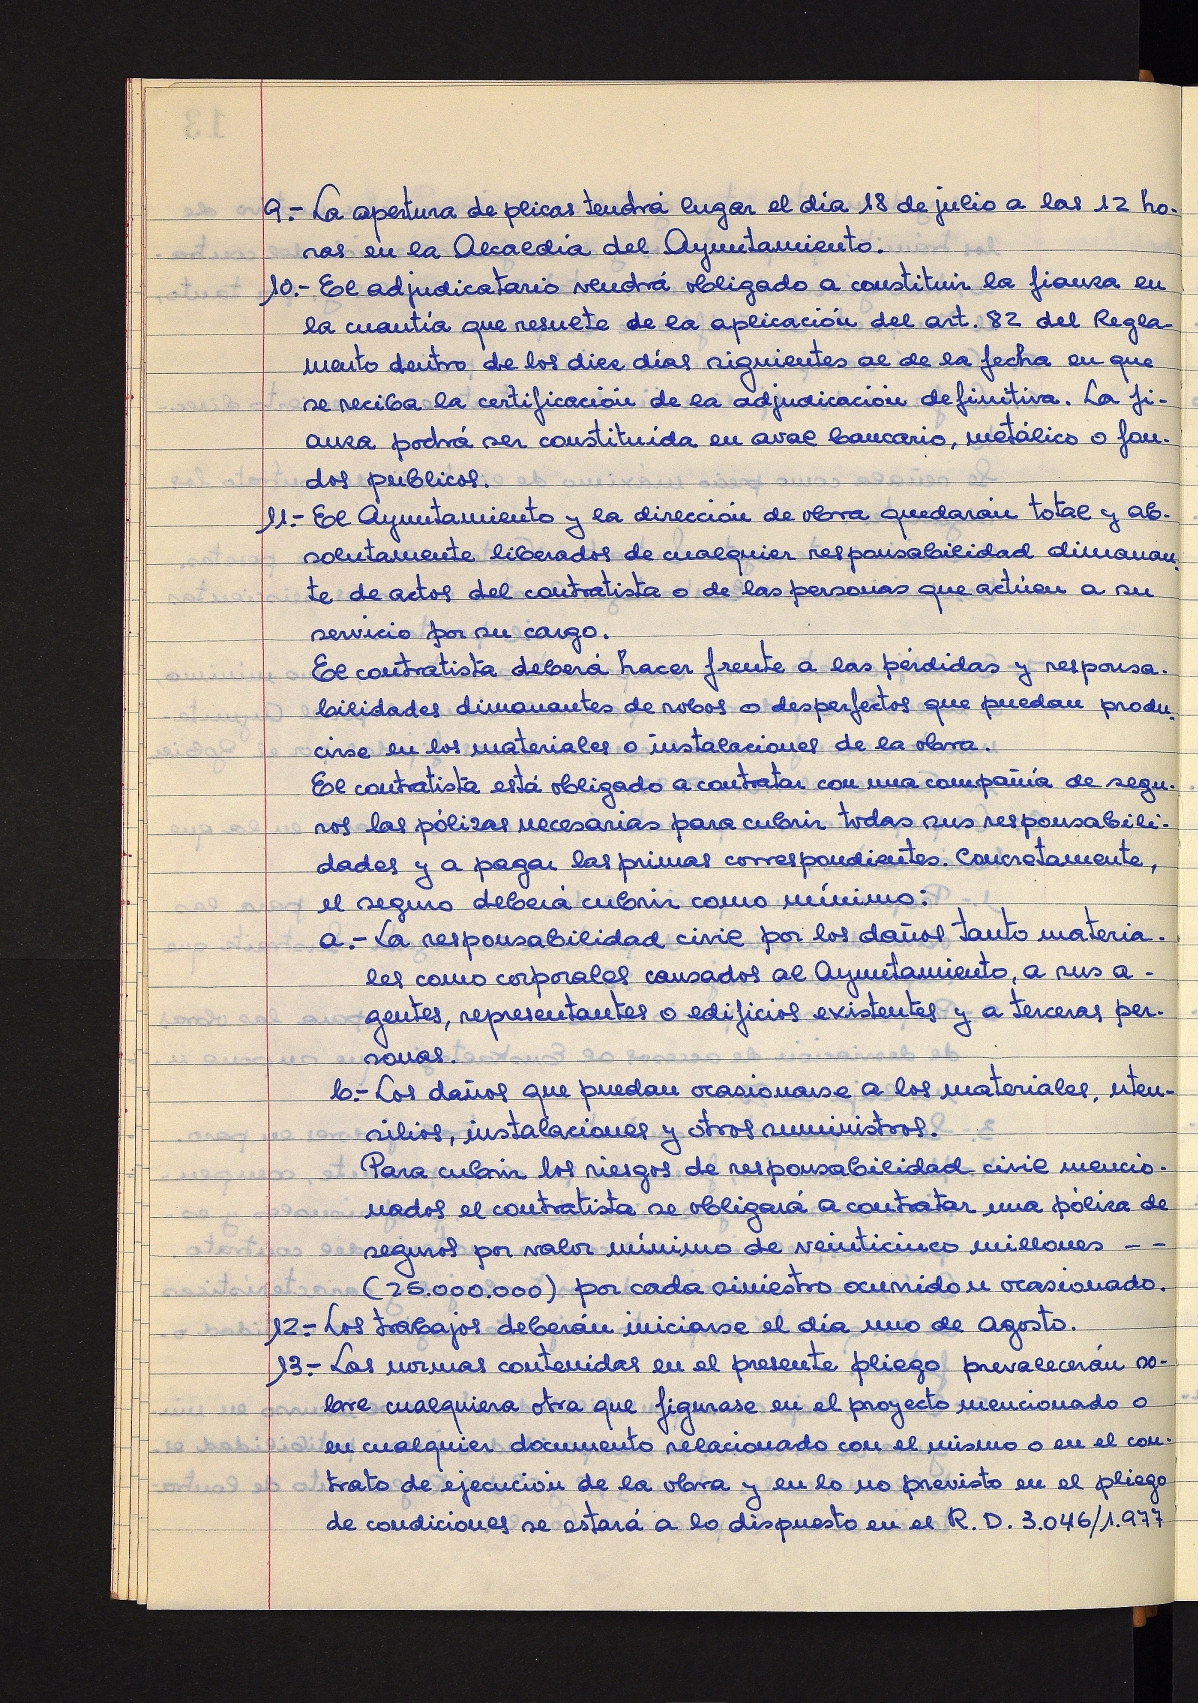 9.- La apertura de plicas tendrá lugar el día 18 de julio a las 12 ho-
ras en la Alcaldía del Ayuntamiento.
10.- El adjudicatario vendrá obligado a constituir la fianza en
la cuantía que resulte de la aplicación del art. 82 del Regla-
mento dentro de los diez días siguientes al de la fecha en que
se reciba la certificación de la adjudicación definitiva. La fi-
anza podrá ser constituída en aval bancario, metálico o fon-
dos públicos.
11.- El Ayuntamiento y la dirección de obra quedarán total y ab-
solutamente liberados de cualquier responsabilidad dimanan-
te de actos del contratista o de las personas que actúen a su
servicio por su cargo.
El contratista deberá hacer frente a las pérdidas y responsa-
bilidades dimanantes de robos o desperfectos que puedan produ-
cirse en los materiales o instalaciones de la obra.
El contratista está obligado a contratar con una compañía de segu-
ros las pólizas necesarias para cubrir todas sus responsabili-
dades y a pagar las primas correspondientes. Concretamente,
el seguro deberá cubrir como mínimo:
a.- La responsabilidad civil por los daños tanto materia-
les como corporales causados al Ayuntamiento, a sus a-
gentes, representantes o edificios existentes y a terceras per-
sonas.
b.- Los daños que puedan ocasionarse a los materiales, uten-
silios, instalaciones y otros suministros.
Para cubrir los riesgos de responsabilidad civil mencio-
nados el contratista se obligará a contratar una póliza de
seguros por valor mínimo de veinticinco millones - -
(25.000.000) por cada siniestro ocurrido u ocasionado.
12.- Los trabajos deberán iniciarse el día uno de Agosto.
13.- Las normas contenidas en el presente pliego prevalecerán so-
bre cualquiera otra que figurase en el proyecto mencionado o
en cualquier documento relacionado con el mismo o en el con-
trato de ejecución de la obra y en lo no previsto en el pliego
de condiciones se estará a lo dispuesto en el R. D. 3.046/1.977